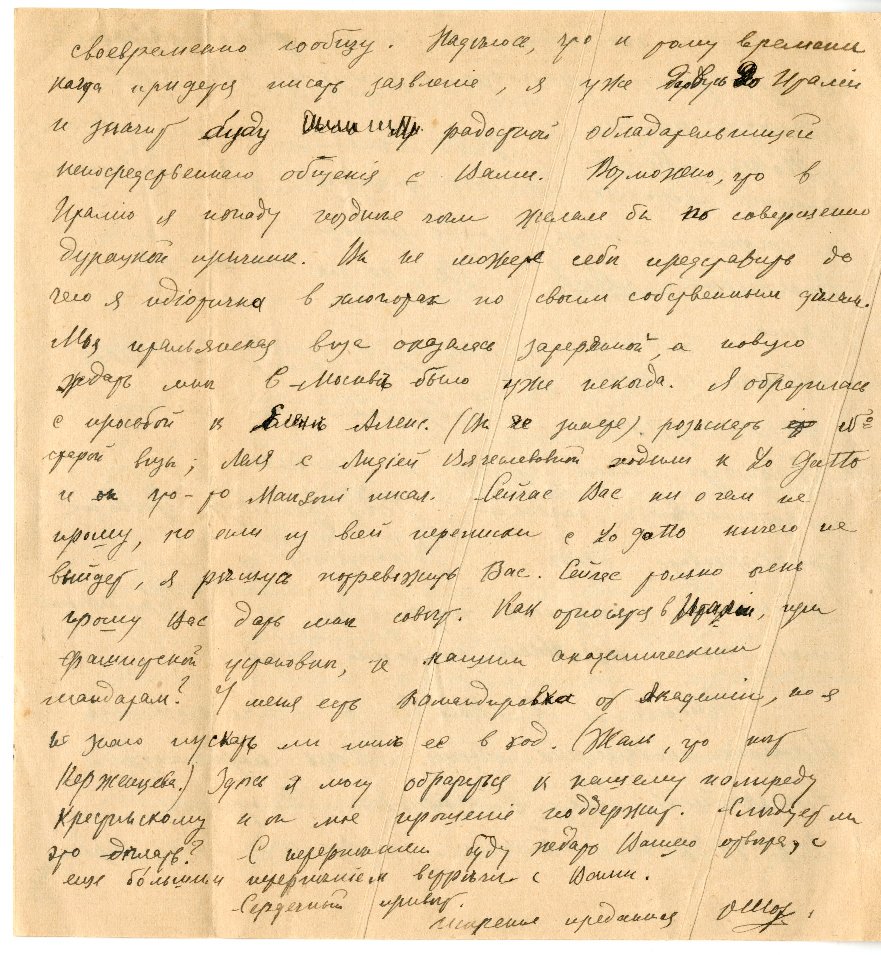 своевременно сообщу. Надѣюсь, что к тому времени
когда придется писать заявленіе, я уже доберусь до Италіи
и значит буду радостной обладательницей
непосредственнаго общенія с Вами. Возможно, что в
Италію я попаду позднѣе чѣм желала бы по совершенно
дурацкой причинѣ. Вы не можете себѣ представить до
чего я идіотична в хлопотах по своим собственным дѣлам.
Моя итальянская виза оказалась затерянной, а новую
ждать мнѣ в Москвѣ было уже некогда. Я обратилась
с просьбой к Еленѣ Алекс. (Вы ее знаете) розыскать №
старой визы; Леля с Лидіей Вячеславовной ходили к Lo Gatto
и он что-то Manzoni писал. Сейчас Вас ни о чем не
прошу, но если из всей переписки с Lo Gatto ничего не
выйдет, я рѣшусь потревожить Вас. Сейчас только очень
прошу Вас дать мнѣ совѣт. Как относятся в Италіи, при
фашистской установкѣ, к нашим академическим
мандатам? У меня есть командировка от Академіи, но я
не знаю пускать ли мнѣ ее в ход. (Жаль, что нѣт
Керженцева.) Здѣсь я могу обратиться к нашему полпреду
Крестинскому и он мое прошеніе поддержит. Слѣдует ли
это дѣлать? С нетерпѣніем буду ждать Вашего отвѣта, с
еще бо́льшим нетерпѣніем встрѣчи с Вами.
Сердечный привѣт.
Искренне преданная ОШор.